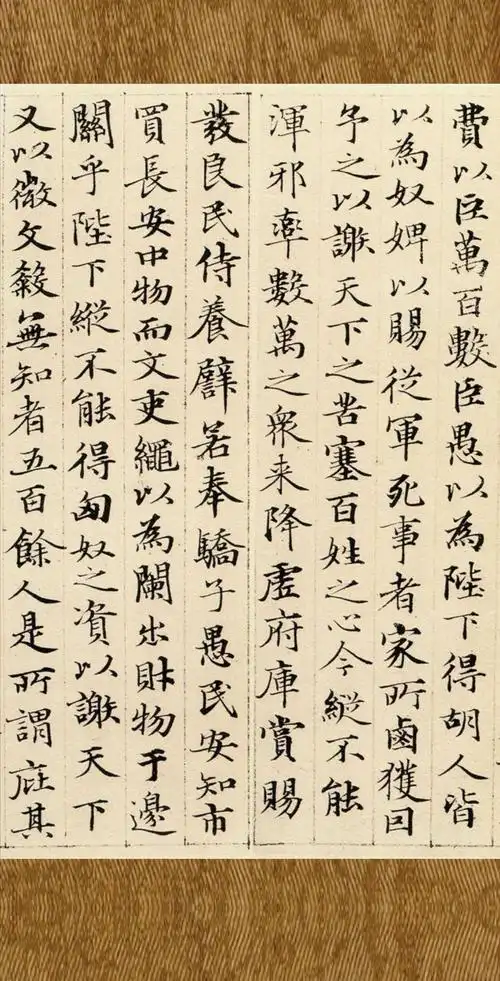 費以臣萬百數臣愚以為陛下得胡人皆
以為奴婢以賜從軍死事者家所鹵獲因
予之以謝天下之苦塞百姓之心今縱不能
渾邪率數萬之衆来降虛府庫賞賜
發良民侍養譬若奉驕子愚民安知市
買長安中物而文吏繩以為闌出財物于邊
關乎陛下縱不能得匈奴之資以謝天下
又以微文殺無知者五百餘人是所謂庇其